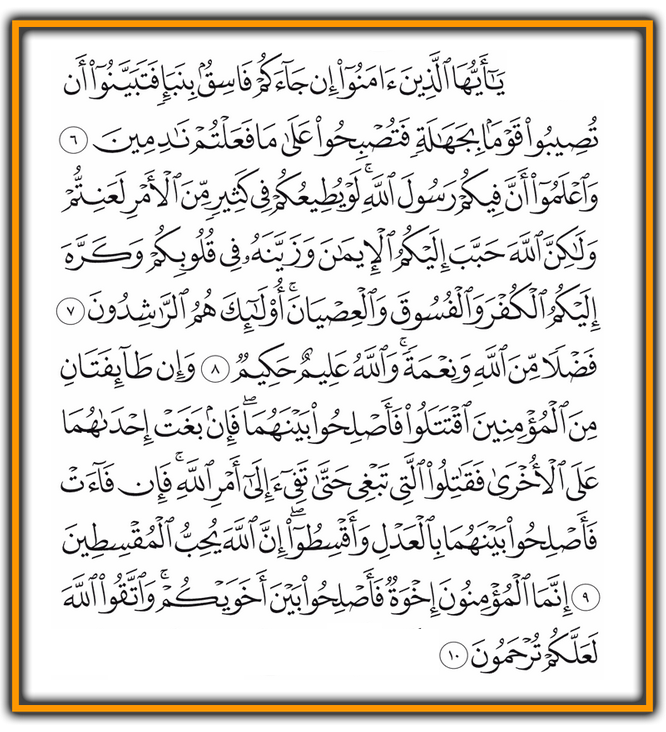 يَـٰٓأَيُّهَا ٱلَّذِينَ ءَامَنُوٓا۟ إِن جَآءَكُمْ فَاسِقٌۢ بِنَبَإٍ فَتَبَيَّنُوٓا۟ أَن
تُصِيبُوا۟ قَوْمًۢا بِجَهَـٰلَةٍ فَتُصْبِحُوا۟ عَلَىٰ مَا فَعَلْتُمْ نَـٰدِمِينَ ٦
وَٱعْلَمُوٓا۟ أَنَّ فِيكُمْ رَسُولَ ٱللَّهِ ۚ لَوْ يُطِيعُكُمْ فِى كَثِيرٍ مِّنَ ٱلْأَمْرِ لَعَنِتُّمْ
وَلَـٰكِنَّ ٱللَّهَ حَبَّبَ إِلَيْكُمُ ٱلْإِيمَـٰنَ وَزَيَّنَهُۥ فِى قُلُوبِكُمْ وَكَرَّهَ
إِلَيْكُمُ ٱلْكُفْرَ وَٱلْفُسُوقَ وَٱلْعِصْيَانَ ۚ أُو۟لَـٰٓئِكَ هُمُ ٱلرَّٰشِدُونَ ٧
فَضْلًا مِّنَ ٱللَّهِ وَنِعْمَةً ۚ وَٱللَّهُ عَلِيمٌ حَكِيمٌ ٨ وَإِن طَآئِفَتَانِ
مِنَ ٱلْمُؤْمِنِينَ ٱقْتَتَلُوا۟ فَأَصْلِحُوا۟ بَيْنَهُمَا ۖ فَإِنۢ بَغَتْ إِحْدَىٰهُمَا
عَلَى ٱلْأُخْرَىٰ فَقَـٰتِلُوا۟ ٱلَّتِى تَبْغِى حَتَّىٰ تَفِىٓءَ إِلَىٰٓ أَمْرِ ٱللَّهِ ۚ فَإِن فَآءَتْ
فَأَصْلِحُوا۟ بَيْنَهُمَا بِٱلْعَدْلِ وَأَقْسِطُوٓا۟ ۖ إِنَّ ٱللَّهَ يُحِبُّ ٱلْمُقْسِطِينَ
٩ إِنَّمَا ٱلْمُؤْمِنُونَ إِخْوَةٌ فَأَصْلِحُوا۟ بَيْنَ أَخَوَيْكُمْ ۚ وَٱتَّقُوا۟ ٱللَّهَ
لَعَلَّكُمْ تُرْحَمُونَ ١٠